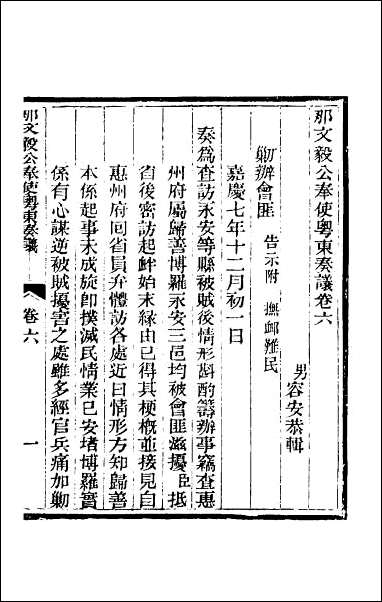 那文毅公奉使粤東奏議卷六
男容安恭輯
勦辦會匪 告示附 撫卹難民
嘉慶七年十二月初一日
奏為查訪永安等縣被賊後情形斟酌籌辦事竊查惠
州府屬歸善博羅永安三邑均被會匪滋擾臣抵
省後密訪起衅始末緣由已得其梗概並接見自
惠州府回省員弁體訪各處近日情形方知歸善
本係起事未成旋即撲滅民情業已安堵博羅實
係有心謀逆被賊擾害之處雖多經官兵痛加勦
那文毅公奉使粤東奏議 卷六 一